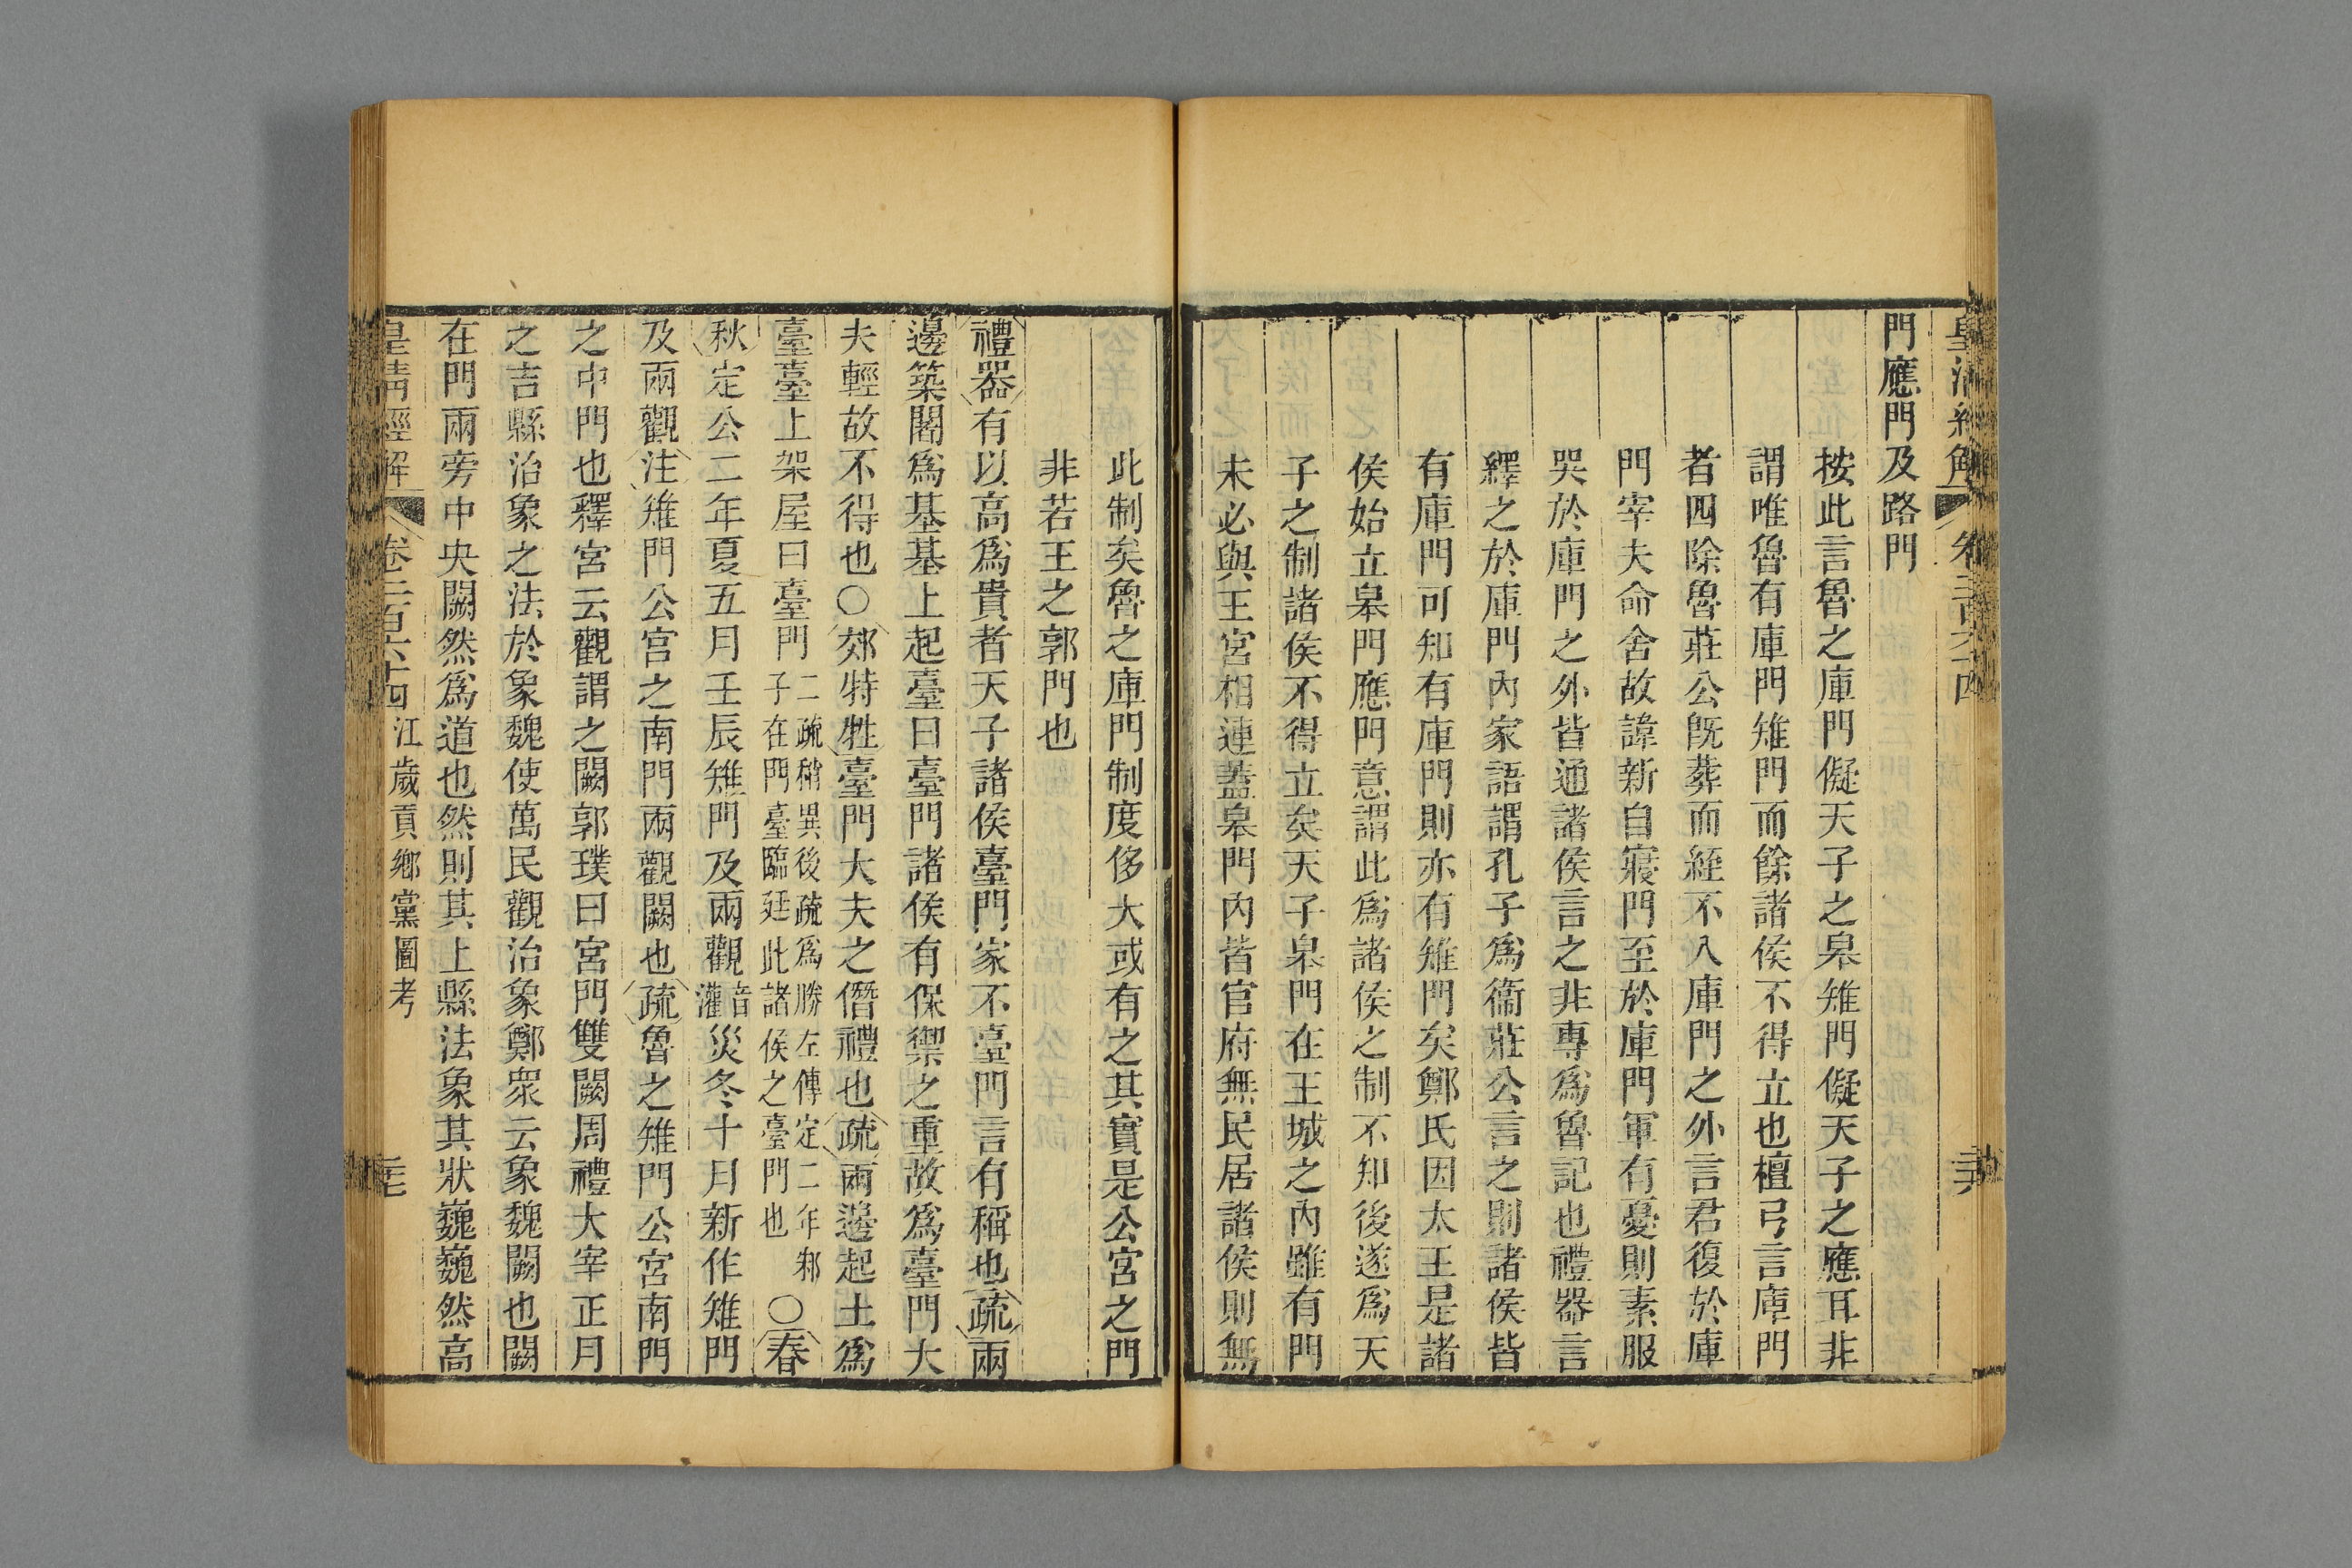 皇清經解 卷二百六十四 三六
門應門及路門
按此言魯之庫門儗天子之皋雉門儗天子之應耳非
謂唯魯有庫門雉門而餘諸侯不得立也檀弓言庫門
者四除魯莊公旣葬而絰不入庫門之外言君復於庫
門宰夫命舍故諱新自寢門至於庫門軍有憂則素服
哭於庫門之外皆通諸侯言之非專爲魯記也禮器言
繹之於庫門內家語謂孔子爲衞莊公言之則諸侯皆
有庫門可知有庫門則亦有雉門矣鄭氏因太王是諸
侯始立皋門應門意謂此爲諸侯之制不知後遂爲天
子之制諸侯不得立矣天子皋門在王城之內雖有門
未必與王宮相連蓋皋門內皆官府無民居諸侯則無
此制矣魯之庫門制度侈大或有之其實是公宮之門
非若王之郭門也
禮器有以高爲貴者天子諸侯臺門家不臺門言有稱也疏兩
邊築闍爲基基上起臺曰臺門諸侯有保禦之重故爲臺門大
夫輕故不得也○郊特牲臺門大夫之僭禮也疏兩邊起土爲
臺臺上架屋曰臺門二疏稍異後疏爲勝左傳定二年邾子在門臺臨廷此諸侯之臺門也○春
秋定公二年夏五月壬辰雉門及兩觀音灌災冬十月新作雉門
及兩觀注雉門公宮之南門兩觀闕也疏魯之雉門公宮南門
之中門也釋宮云觀謂之闕郭璞曰宮門雙闕周禮大宰正月
之吉縣治象之法於象魏使萬民觀治象鄭衆云象魏闕也闕
在門兩旁中央闕然爲道也然則其上縣法象其狀巍巍然高
皇清經解 卷二百六十四 江歲貢鄉黨圖考 三七